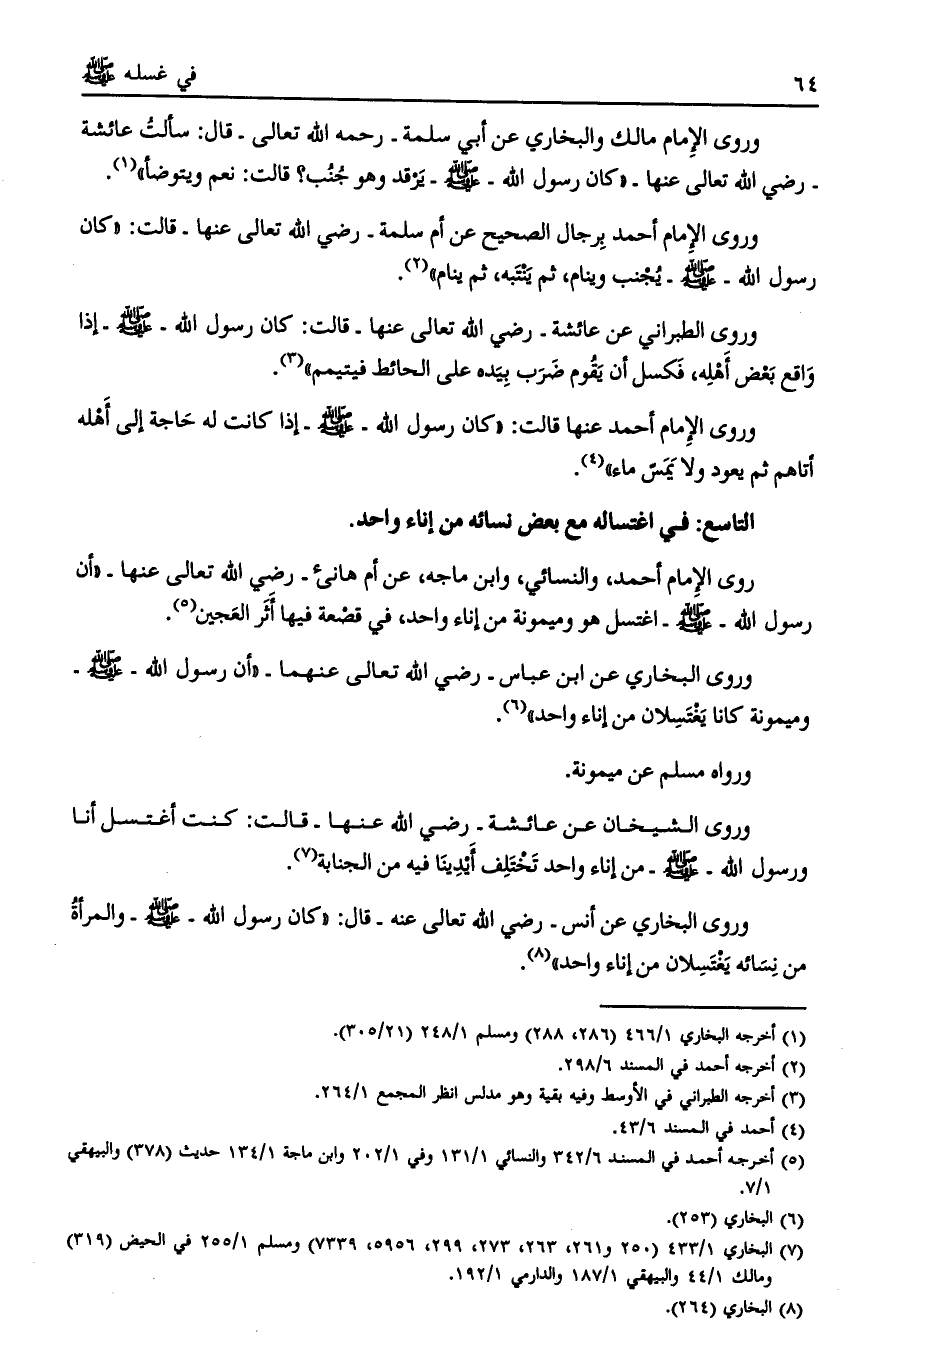 ٦٤ في غسله ﷺ
وروى الإمام مالك والبخاري عن أبي سلمة ـ رحمه الله تعالى ـ قال: سألتُ عائشة
ـ رضي الله تعالى عنها ـ «كان رسول الله ـ ﷺ ـ يَرْقد وهو جُنُب؟ قالت: نعم ويتوضأ»(١).
وروى الإمام أحمد بِرجال الصحيح عن أم سلمة ـ رضي الله تعالى عنها ـ قالت: «كان
رسول الله ـ ﷺ ـ يُجْنب وينام، ثم يَنْتَبه، ثم ينام»(٢).
وروى الطبراني عن عائشة ـ رضي الله تعالى عنها ـ قالت: كان رسول الله ـ ﷺ ـ إذا
وَاقع بَعْض أَهْلِه، فَكسل أن يَقُوم ضَرَب بِيَده على الحائط فيتيمم»(٣).
وروى الإمام أحمد عنها قالت: «كان رسول الله ـ ﷺ ـ إذا كانت له حَاجة إلى أَهْله
أتاهم ثم يعود ولا يَمَسّ ماء»(٤).
التاسع: في اغتساله مع بعض نسائه من إناء واحد.
روى الإمام أحمد، والنسائي، وابن ماجه، عن أم هانئ ـ رضي الله تعالى عنها ـ «أن
رسول الله ـ ﷺ ـ اغتسل هو وميمونة من إناء واحد، في قصْعة فيها أَثَر العَجين»(٥).
وروى البخاري عن ابن عباس ـ رضي الله تعالى عنهما ـ «أن رسول الله ـ ﷺ ـ
وميمونة كانا يَغْتَسِلان من إناء واحد»(٦).
ورواه مسلم عن ميمونة.
وروى الشيخان عن عائشة ـ رضي الله عنها ـ قالت: كنت أغتسل أنا
ورسول الله ـ ﷺ ـ من إناء واحد تَخْتَلِف أَيْدِينَا فيه من الجنابة(٧).
وروى البخاري عن أنس ـ رضي الله تعالى عنه ـ قال: «كان رسول الله ـ ﷺ ـ والمرأةُ
من نِسَائه يَغْتَسِلان من إناء واحد»(٨).
(١) أخرجه البخاري ٤٦٦/١ (٢٨٦، ٢٨٨) ومسلم ٢٤٨/١ (٣٠٥/٢١).
(٢) أخرجه أحمد في المسند ٢٩٨/٦.
(٣) أخرجه الطبراني في الأوسط وفيه بقية وهو مدلس انظر المجمع ٢٦٤/١.
(٤) أحمد في المسند ٤٣/٦.
(٥) أخرجه أحمد في المسند ٣٤٢/٦ والنسائي ١٣١/١ وفي ٢٠٢/١ وابن ماجة ١٣٤/١ حديث (٣٧٨) والبيهقي
٧/١.
(٦) البخاري (٢٥٣).
(٧) البخاري ٤٣٣/١ (٢٥٠ و٢٦١، ٢٦٣، ٢٧٣، ٢٩٩، ٥٩٥٦، ٧٣٣٩) ومسلم ٢٥٥/١ في الحيض (٣١٩)
ومالك ٤٤/١ والبيهقي ١٨٧/١ والدارمي ١٩٢/١.
(٨) البخاري (٢٦٤).